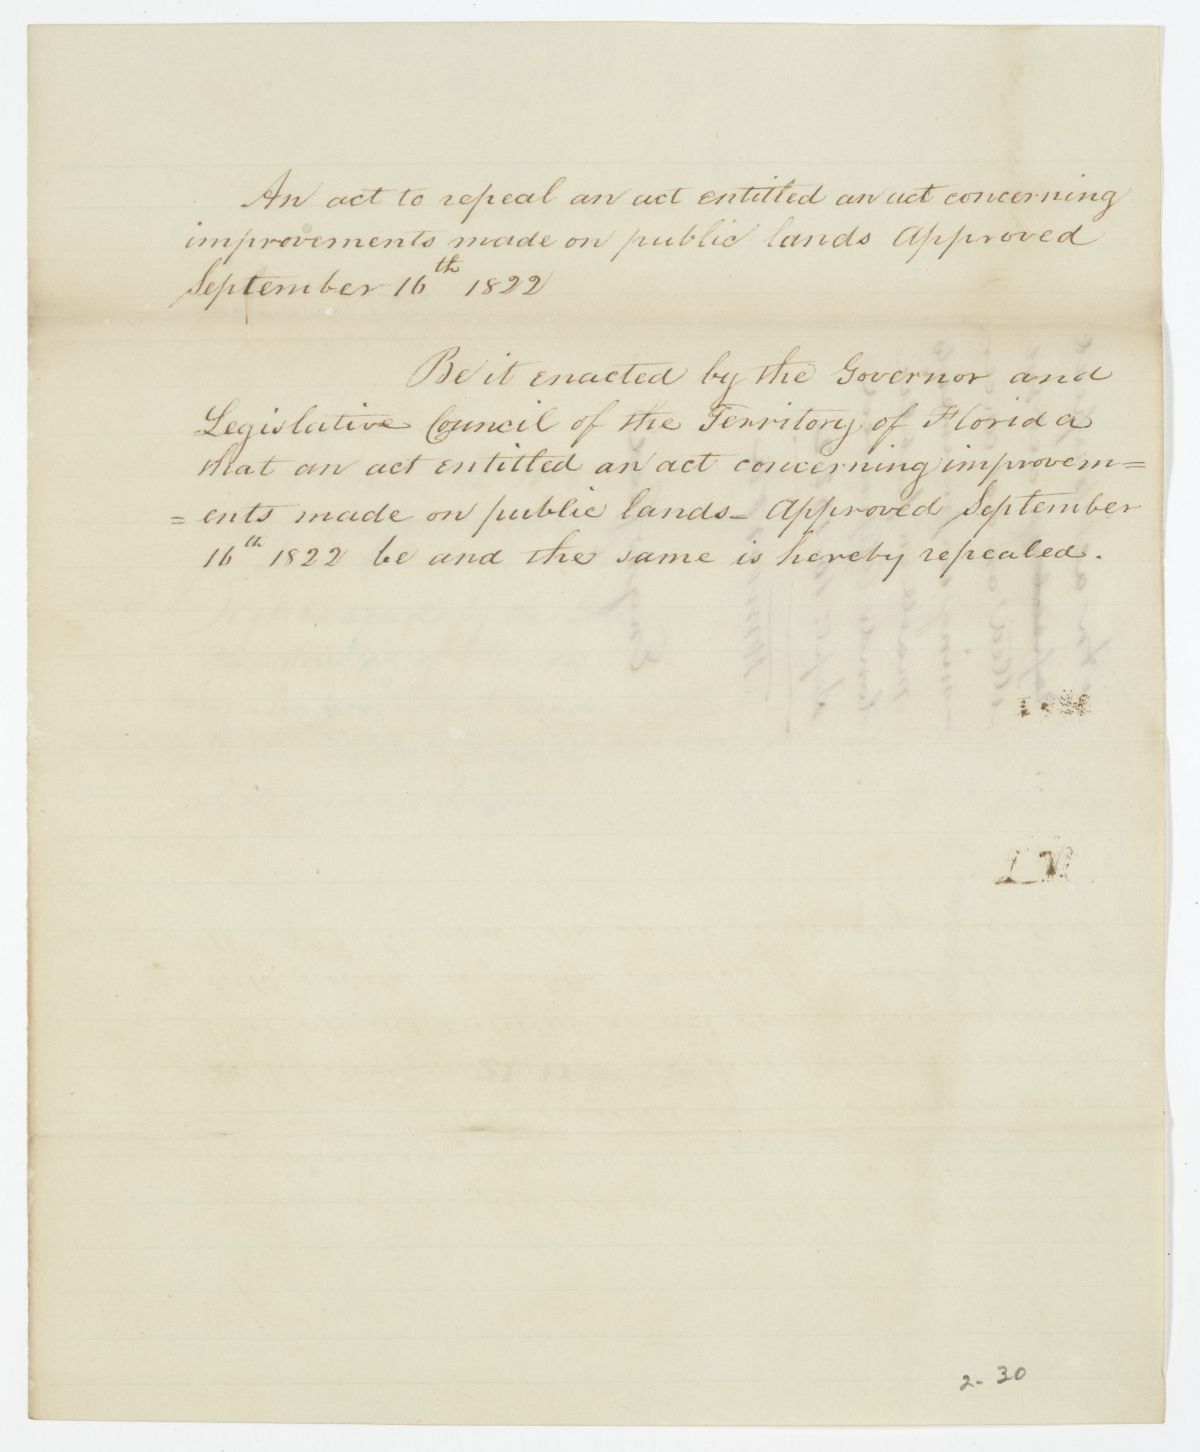 An act to repeal an act entitled an act concerning
improvements made on public lands Approved
September 16th 1822
Be it enacted by the Governor and
Legislative Council of the Territory of Florida
that an act entitled an act concerning improvem=
= ents made on public lands = Approved September
16th 1822 be and the same is hereby repealed.
2-30